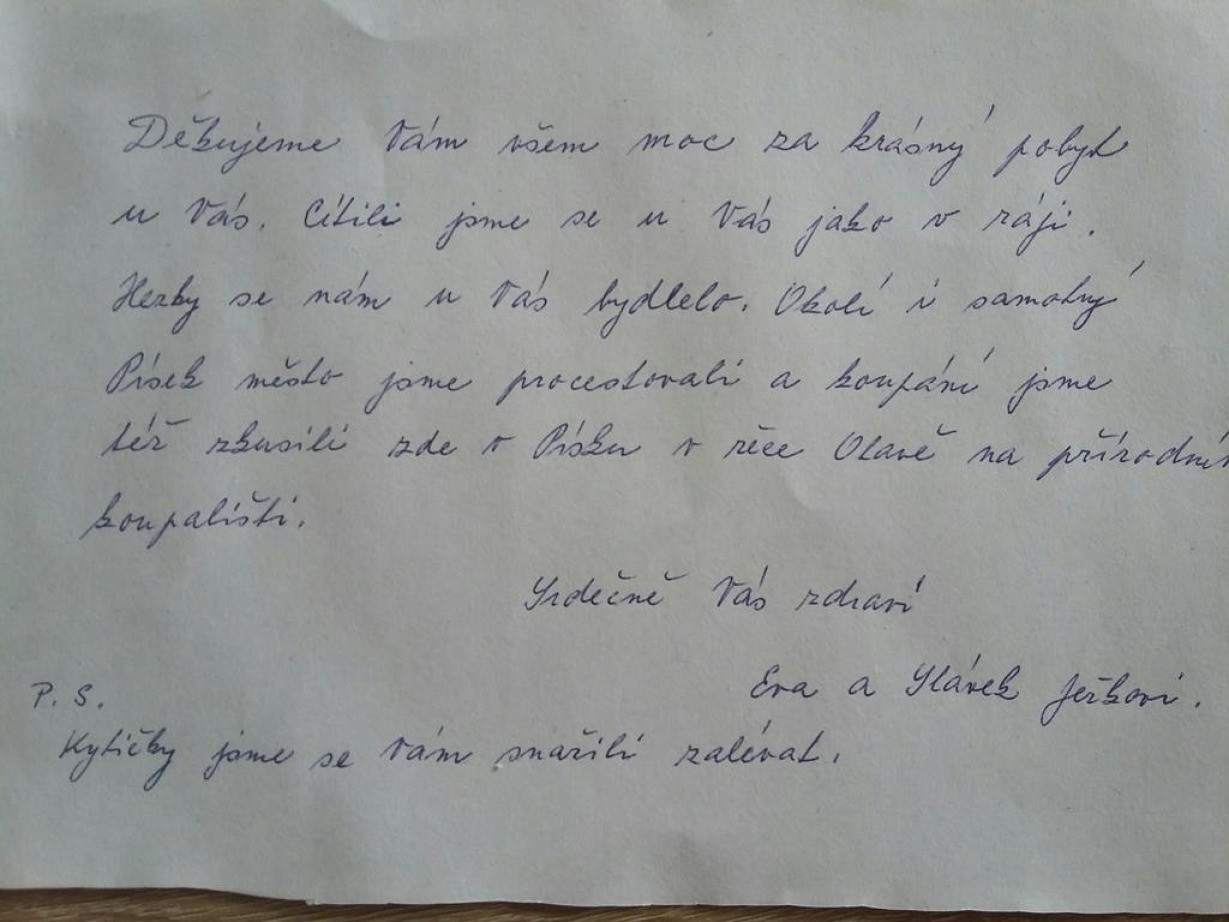 Děkujeme Vám všem moc za krásný pobyt
u Vás. Cítili jsme se u Vás jako v ráji.
Hezky se nám u Vás bydlelo. Okolí i samotný
Písek město jsme procestovali a koupání jsme
též zkusili zde v Písku v řece Otavě na přírodním
koupališti.
Srdečně Vás zdraví
Eva a Slávek Ježkovi.
P. S.
Kytičky jsme se Vám snažili zalévat.